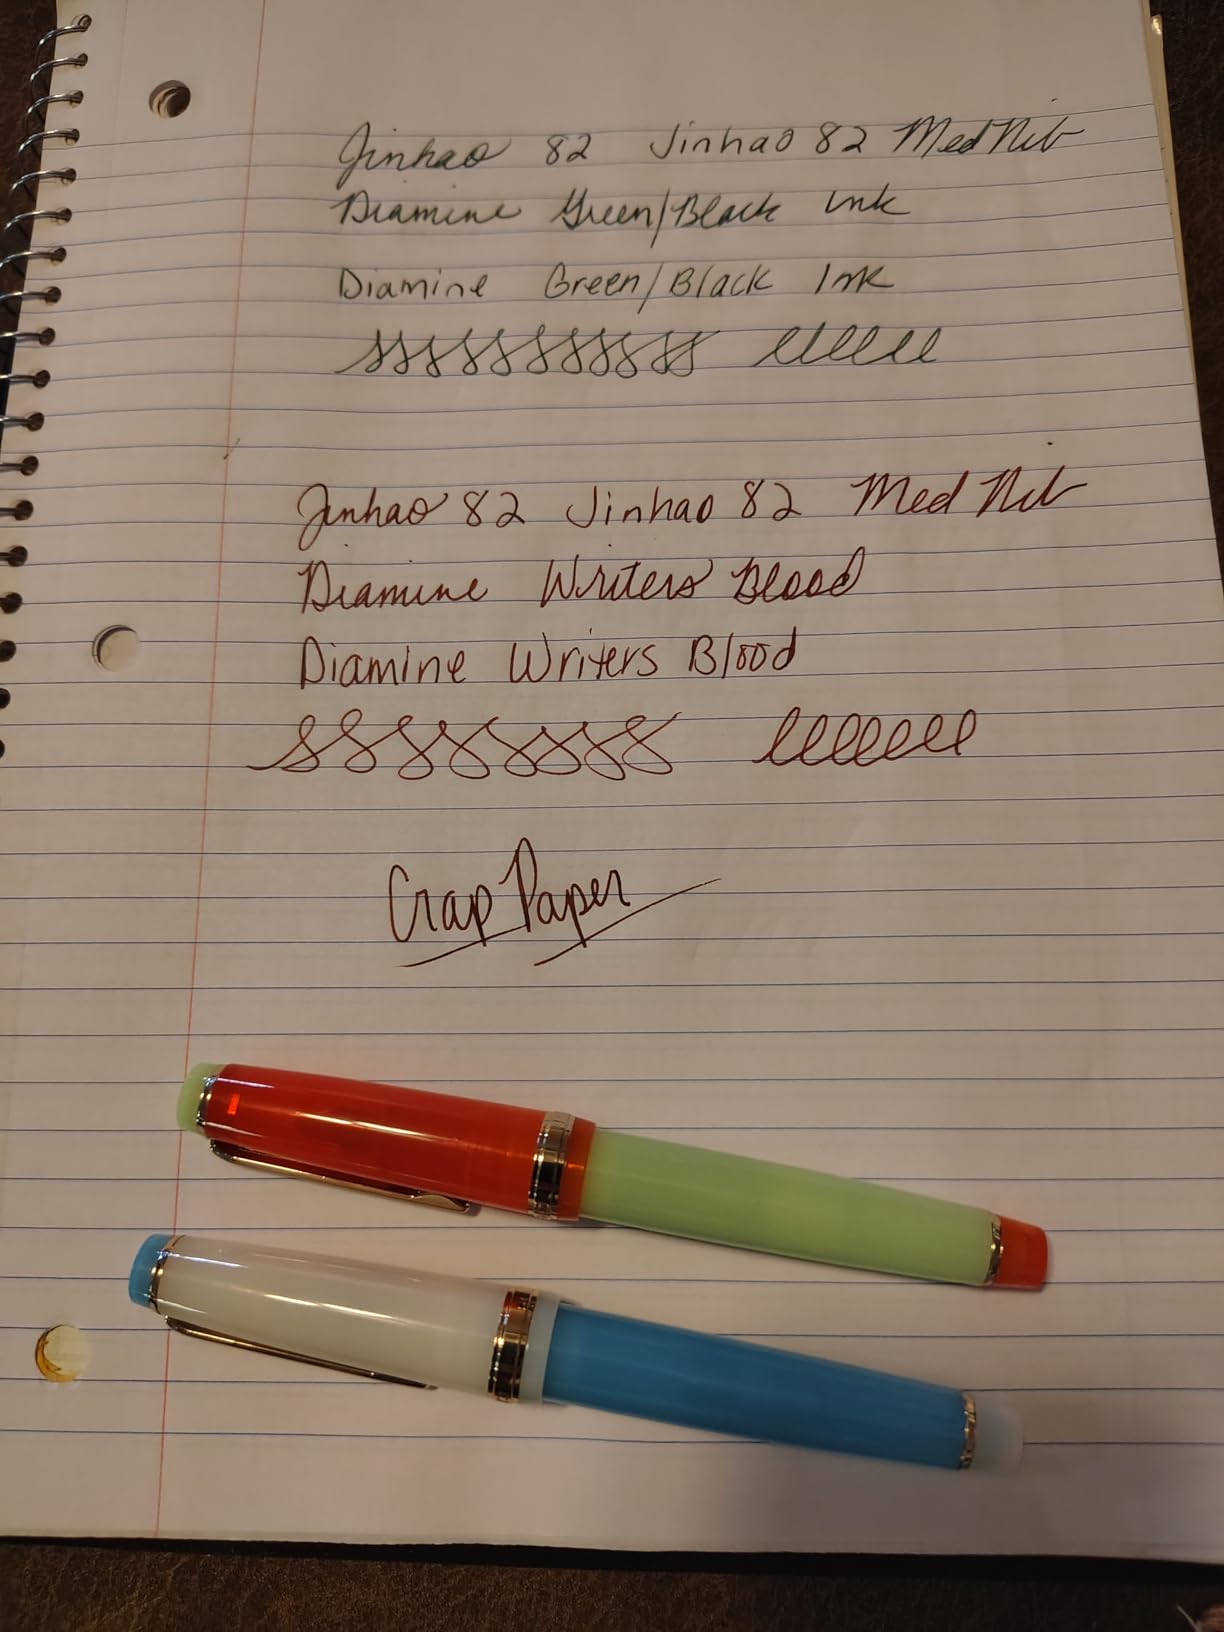 Jinhao 82 Jinhao 82 Med Nib
Diamine Green/Black Ink
Diamine Green/Black Ink
Jinhao 82 Jinhao 82 Med Nib
Diamine Writers Blood
Diamine Writers Blood
Crap Paper